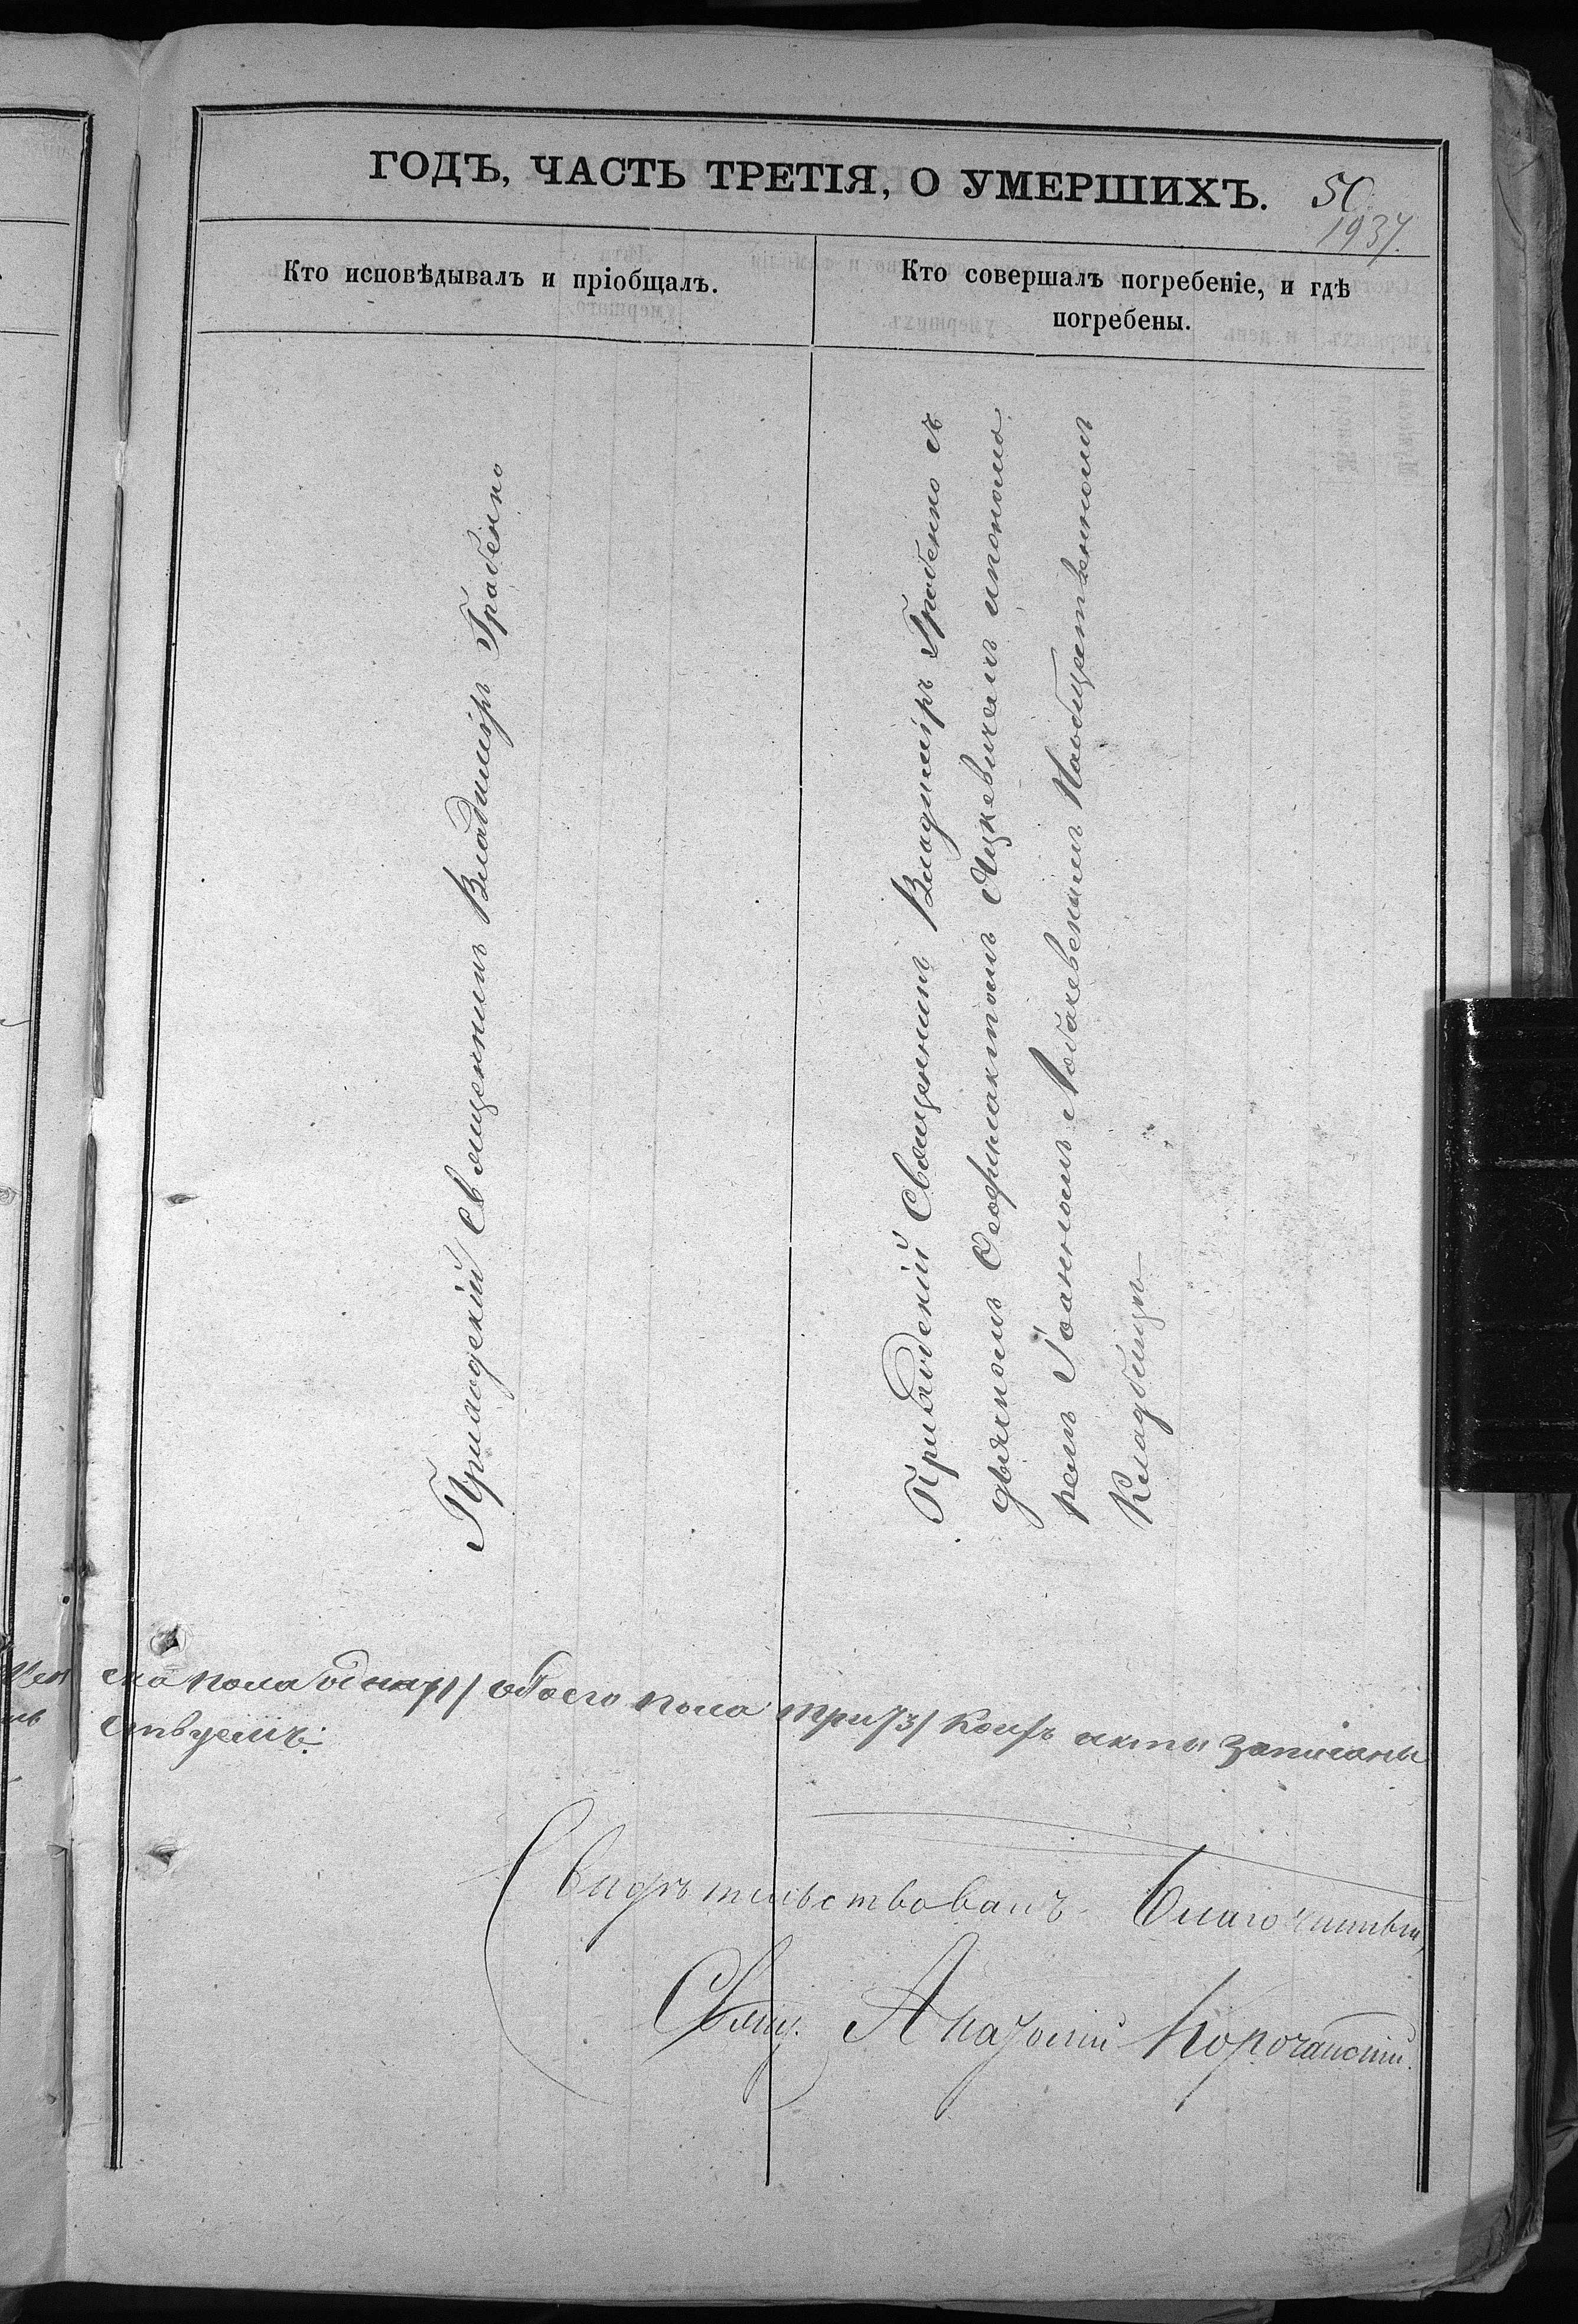 ГОДЪ, ЧАСТЬ ТРЕТІЯ, О УМЕРШИХЪ.
50
1937.
Кто исповѣдывалъ и пріобщалъ.
Кто совершалъ погребеніе, и гдѣ
погребены.
Приходскій Священникъ Владиміръ Грабенко
Приходскій Священникъ Владиміръ Грабенко съ
дьячкомъ Ѳеофилактомъ Яцкевичемъ и понома
ремъ Іоанномъ Лобачевскимъ На общественномъ
Кладбищѣ
ска пола одна /1/ обоего пола три /3/ коихъ акты записаны
ствуемъ:
Свидѣтельствовалъ Благочинный,
Свящ. Анатолій Корочанскій.